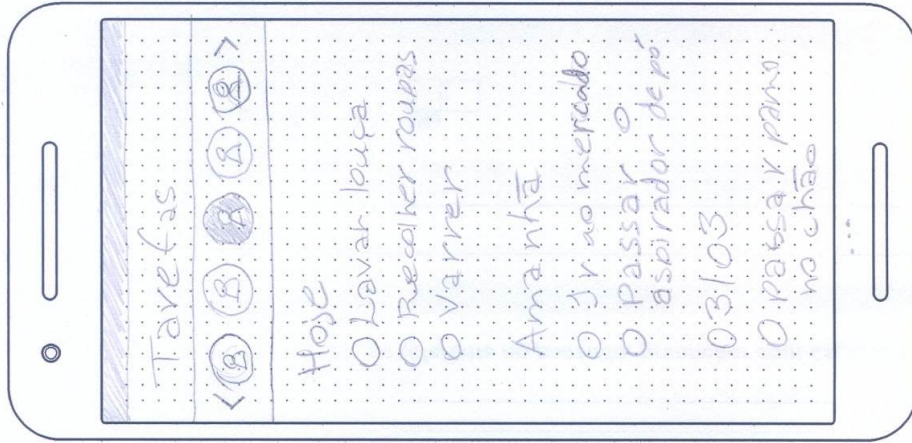 Tarefas
< >
Hoje
O Lavar louça
O Recolher roupas
O Varrer
Amanhã
O Ir ao mercado
O Passar o
aspirador de pó
03/03
O passar pano
no chão